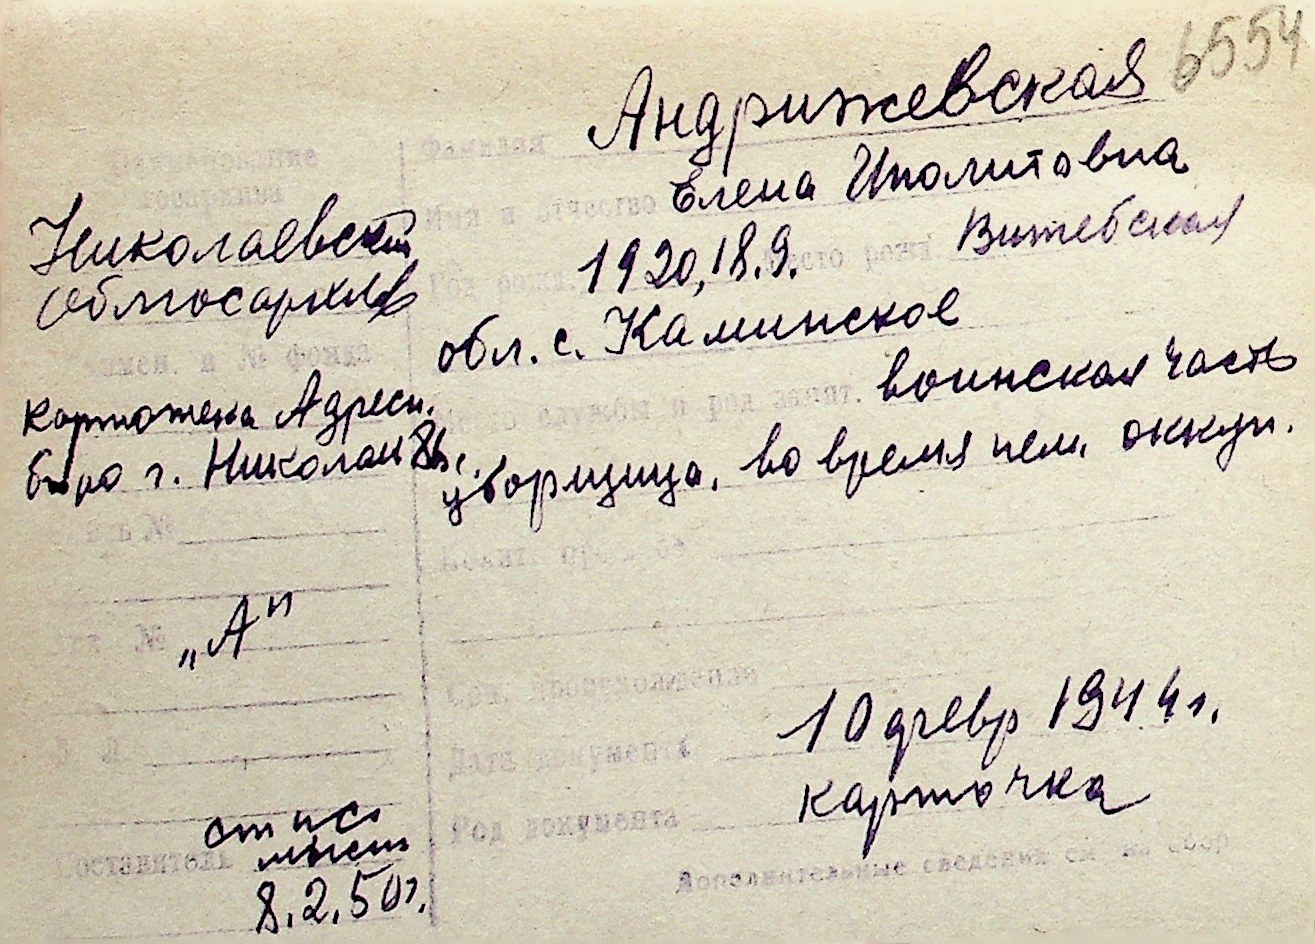 6554
Наименование
госархива
Николаевский
облгосархив
Наимен. и № фонда
картотека Адресн.
бюро г. Николаев
№
№
„А"
Составитель
8.2.50г.
Фамилия Андрижевская
Имя и отчество Елена Иполитовна
Год рожд. 1920, 18.9. Место рожд. Витебская
обл. с. Каминское
Место службы и род занят. воинская часть
уборщица, во время нем. оккуп.
Полит.
Соц. происхождение
Дата документа 10 февр 1944 г.
Род документа карточка
Дополнительные сведения см. на обор